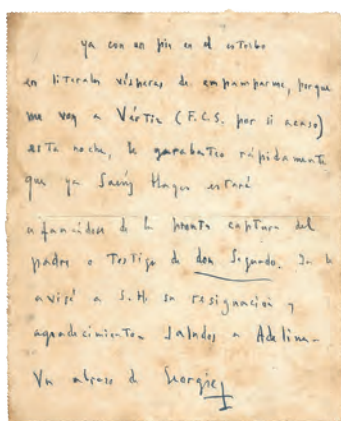 ya con un pie en el estribo
en literales vísperas de empamparme, porque
me voy a Vértiz (F.C.S. por si acaso)
esta noche, le garabateo rápidamente
que ya Saenz Hayes estará
ufanándose de la pronta captura del
padre o testigo de don Segundo. Ya le
avisé a S.H. su resignación y
agradecimiento. Saludos a Adelina.
Un abrazo de Georgie